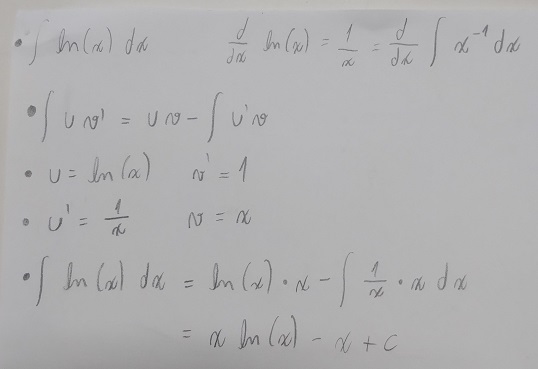 • ∫ ln(x) dx    d/dx ln(x) = 1/x = d/dx ∫ x⁻¹ dx
• ∫ u v' = u v - ∫ u' v
• u = ln(x)    v' = 1
• u' = 1/x    v = x
• ∫ ln(x) dx = ln(x) · x - ∫ 1/x · x dx
= x ln(x) - x + c